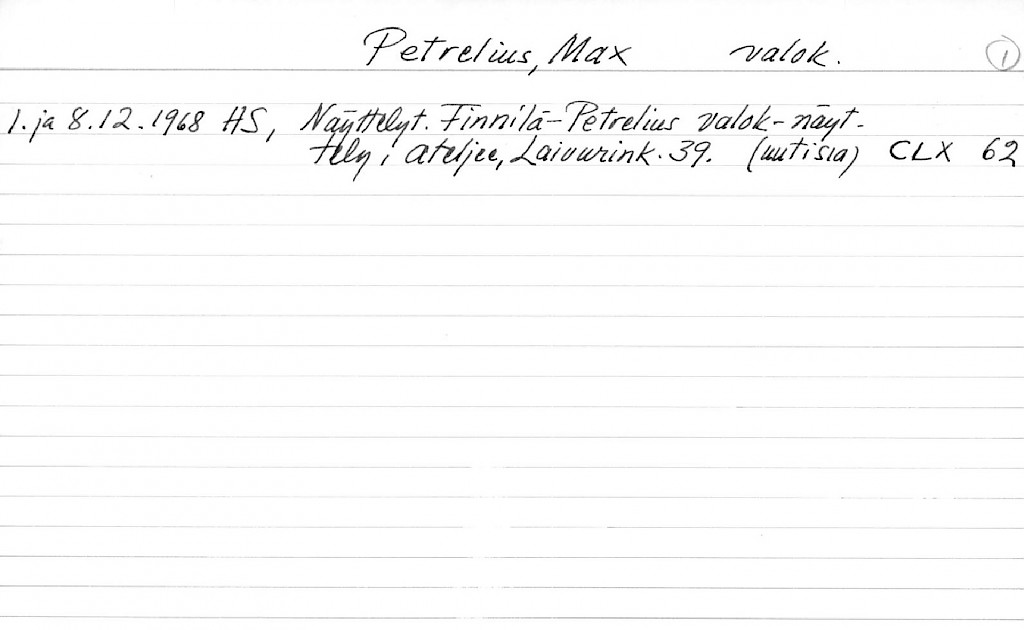 Petrelius, Max valok. 1
1. ja 8.12.1968 HS, Näyttelyt. Finnilä-Petrelius valok-näyt-
tely, ateljee, Laivurink. 39. (uutisia) CLX 62